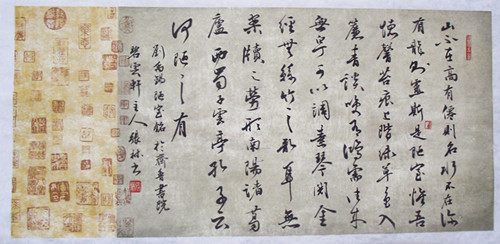 山不在高有僊則名水不在深
有龍則靈斯是陋室惟吾
德馨苔痕上階綠草色入
簾青談笑有鴻儒往來
無白丁可以調素琴閱金
經無絲竹之亂耳無
案牘之勞形南陽諸葛
廬西蜀子雲亭孔子云
何陋之有
劉禹錫陋室銘於齊魯書院
碧雲軒主人張林書